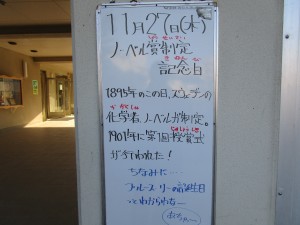 11月27日(木)
ノーベル賞制定
記念日
1895年のこの日、スウェーデンの
化学者、ノーベルが制定。
1901年に第1回授賞式
が行われた！
ちなみに…
ブルース・リーの誕生日